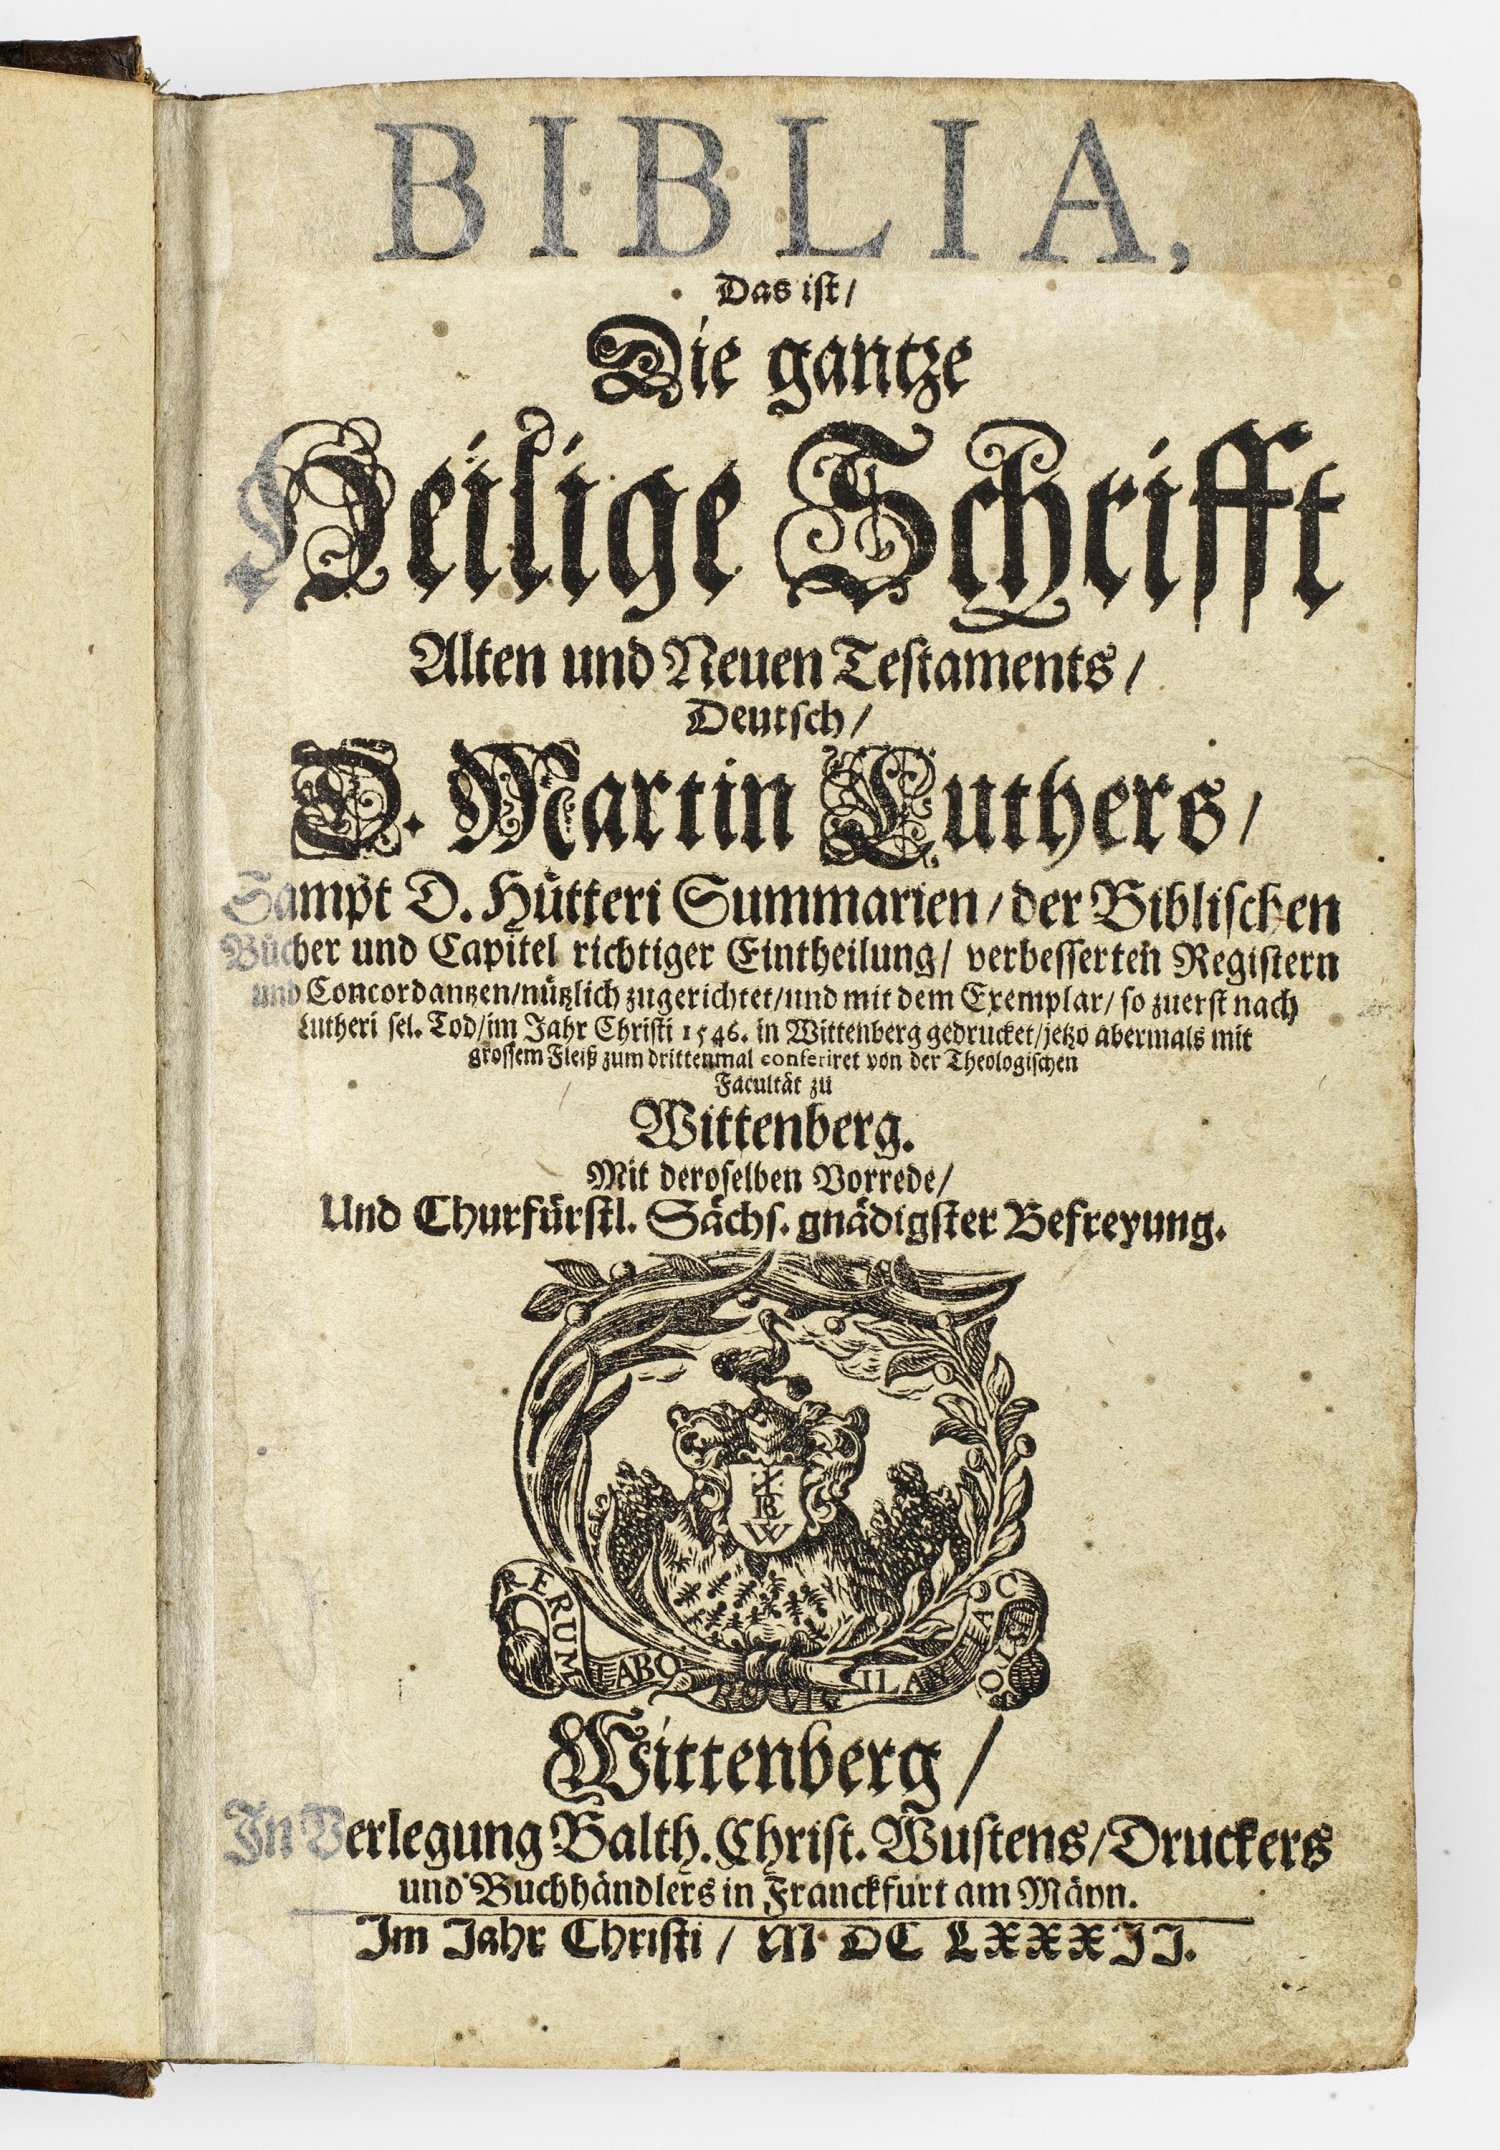 BIBLIA,
Das ist/
Die gantze
Heilige Schrifft
Alten und Neuen Testaments/
Deutsch/
D. Martin Luthers/
Sampt D. Hütteri Summarien/der Biblischen
Bücher und Capitel richtiger Eintheilung/ verbesserten Registern
und Concordantzen/nützlich zugerichtet/und mit dem Exemplar/ so zuerst nach
Lutheri sel. Tod/im Jahr Christi 1546. in Wittenberg gedrucket/jetzo abermals mit
grossem Fleiß zum drittenmal conferiret von der Theologischen
Facultät zu
Wittenberg.
Mit deroselben Vorrede/
Und Churfürstl. Sächs. gnädigster Befreyung.
BC
W
RERUM LABOR
Wittenberg/
In Verlegung Balth. Christ. Wustens/Druckers
und Buchhändlers in Franckfurt am Mäyn.
Im Jahr Christi/ M DC LXXXII.